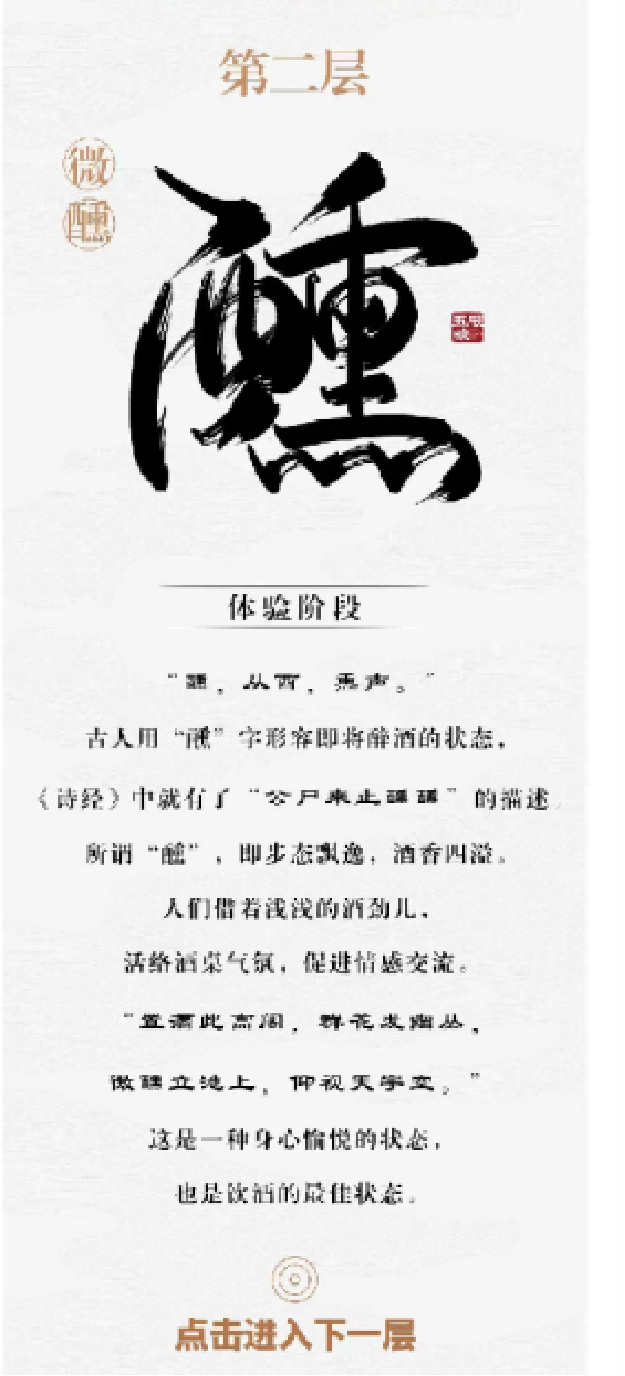 第二层
微
醺
醺
体验阶段
“醺，从酉，熏声。”
古人用“醺”字形容即将醉酒的状态，
《诗经》中就有了“公尸来止醺醺”的描述
所谓“醺”，即步态飘逸，酒香四溢。
人们借着浅浅的酒劲儿，
活络酒桌气氛，促进情感交流。
“置酒此高阁，群花发幽丛，
微醺立池上，仰视天宇空。”
这是一种身心愉悦的状态，
也是饮酒的最佳状态。
点击进入下一层